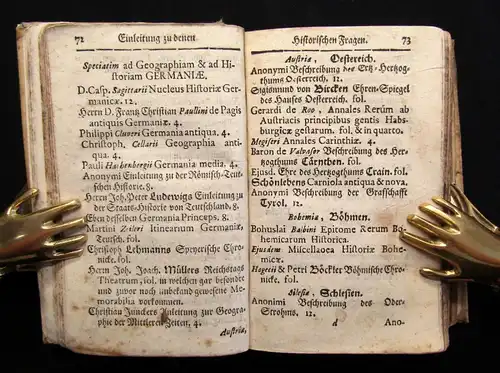 72 Einleitung zu denen
Speciatim ad Geographiam & ad Hi-
storiam GERMANIÆ,
D. Casp. Sagittarii Nucleus Historiæ Ger-
manicæ. 12.
Herrn D. Frantz Christian Paullini de Pagis
antiquis Germaniæ. 4.
Philippi Cluveri Germania antiqua. 4.
Christoph. Cellarii Geographia anti-
qua. 4.
Pauli Hachenbergii Germania media. 4.
Anonymi Einleitung zu der Römisch-Teut-
schen Historie. 8.
Herrn Joh. Peter Ludewigs Einleitung zu
der Staats-Historie von Teutschland. 8.
Eben desselben Germania Princeps. 8.
Martini Zeileri Itinerarum Germaniæ,
Teutsch. fol.
Christoph Lehmanns Speyerische Chro-
nicke. fol.
Herrn Joh. Joach. Müllers Reichstags
Theatrum, fol. in welchen gar besonder
und zuvor unbekandt gewesene Me-
morabilia vorkommen.
Christian Junckers Anleitung zur Geogra-
phie der Mittlern Zeiten. 4.
Austriæ,
Historischen Fragen. 73
Austriæ, Oesterreich.
Anonymi Beschreibung des Ertz-Hertzog-
thums Oesterreich. 12.
Sigismund von Biecken Ehren-Spiegel
des Hauses Oesterreich. fol.
Gerardi de Roo, Annales Rerum ab
Austriacis principibus gentis Habs-
burgicæ gestarum. fol. & in quarto.
Megiseri Annales Carinthiæ. 4.
Baron de Valvasor Beschreibung des Her-
tzogthums Cärnthen. fol.
Ejusd. Ehre des Hertzogthums Crain. fol.
Schönlebens Carniola antiqua & nova.
Anonymi Beschreibung der Graffschafft
Tyrol. 12.
Bohemiæ, Böhmen.
Bohuslai Balbini Epitome Rerum Bo-
hemicarum Historica.
Ejusdem Miscellanea Historiæ Bohe-
micæ.
Hagecii & Petri Böckler Böhmische Chro-
nicke. fol.
Silesiæ, Schlesien.
Anonimi Beschreibung des Oder-
Strohms. 12.
d Ano-